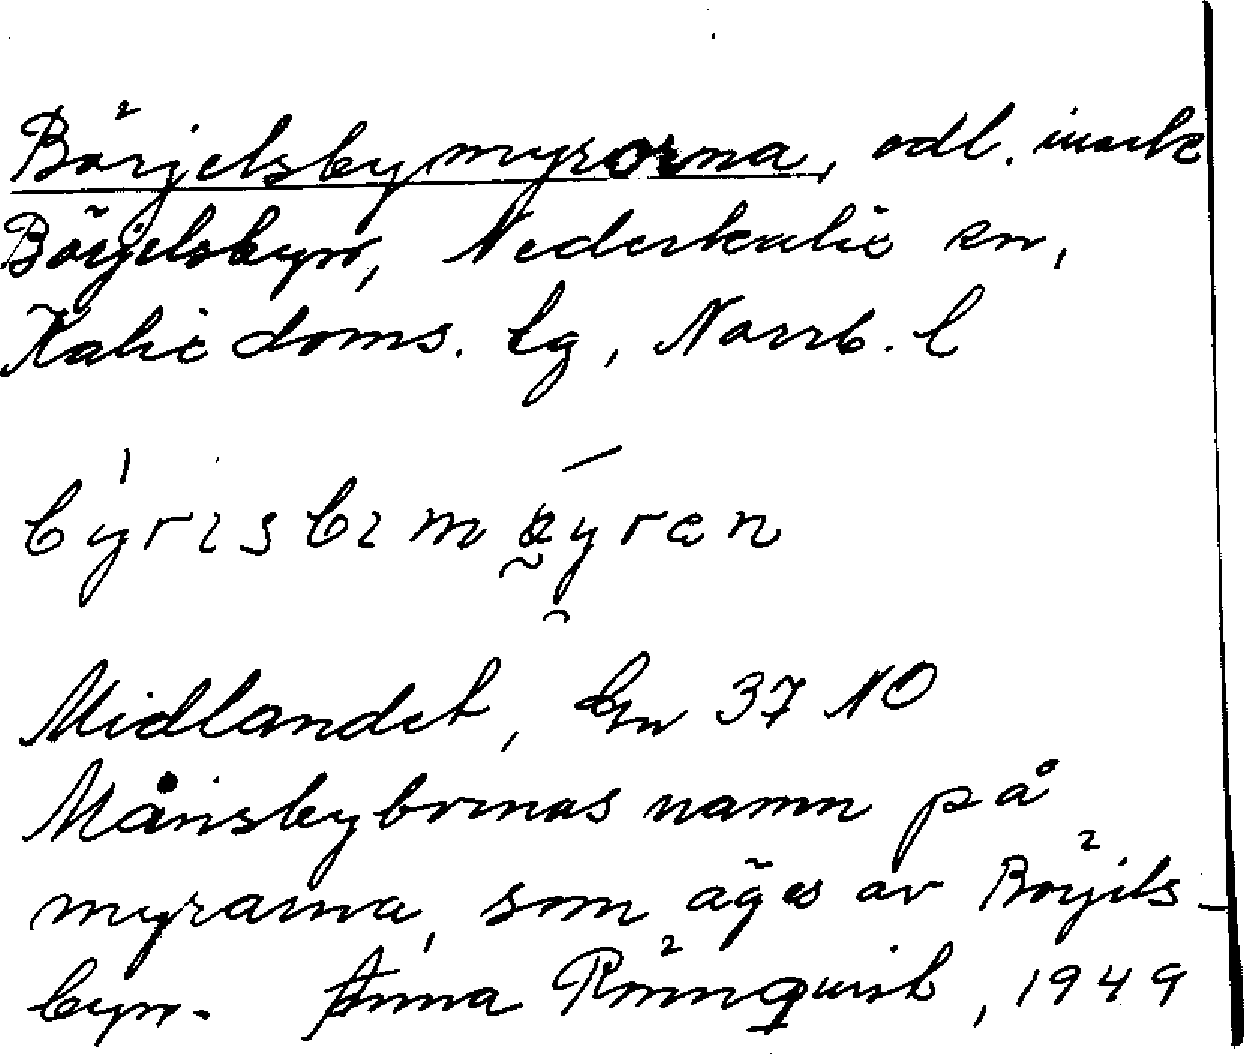 Börjelsbymyrorna, odl. mark
Börjelsbyn, Nederkalix sn,
Kalix doms. lg, Norrb. l
Midlandet, 37 NO
Månsbybornas namn på
myrarna, som äges av Börjels-
byn. Anna Rönnquist, 1949